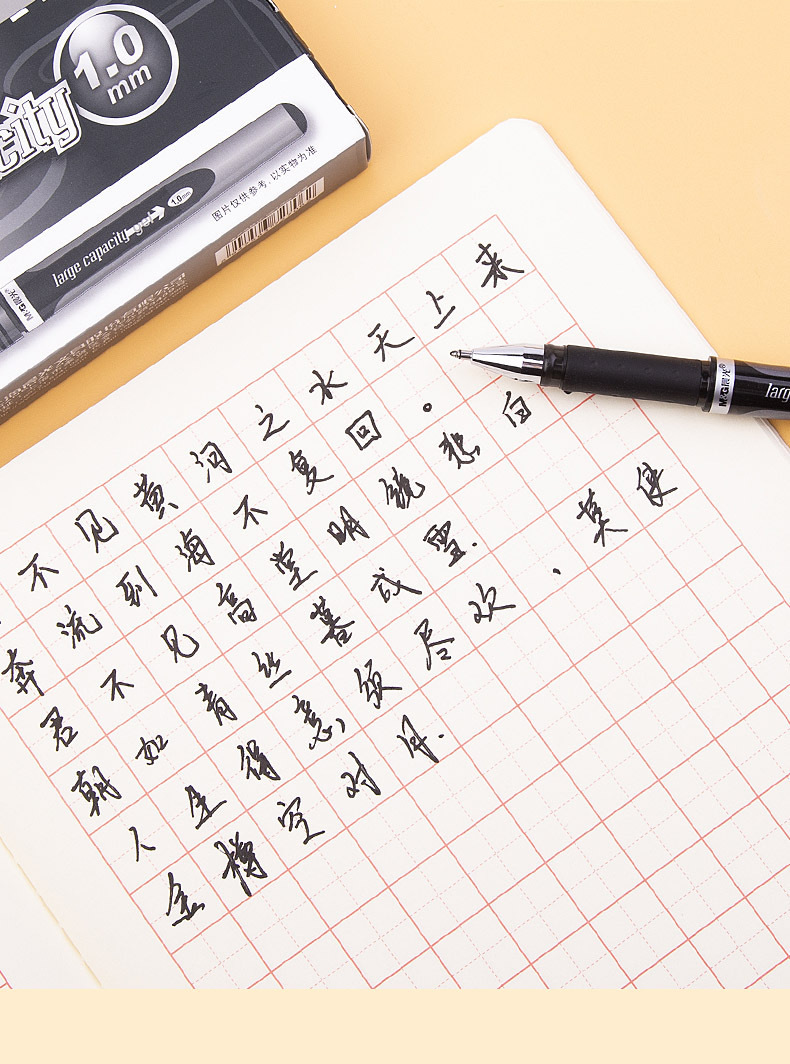 city
1.0
mm
1.0mm
large capacity gel
M&G晨光
图片仅供参考，以实物为准
不见黄河之水天上来
奔流到海不复回。
君不见高堂明镜悲白
朝如青丝暮成雪.
人生得意须尽欢，莫使
金樽空对月.
M&G晨光® larg